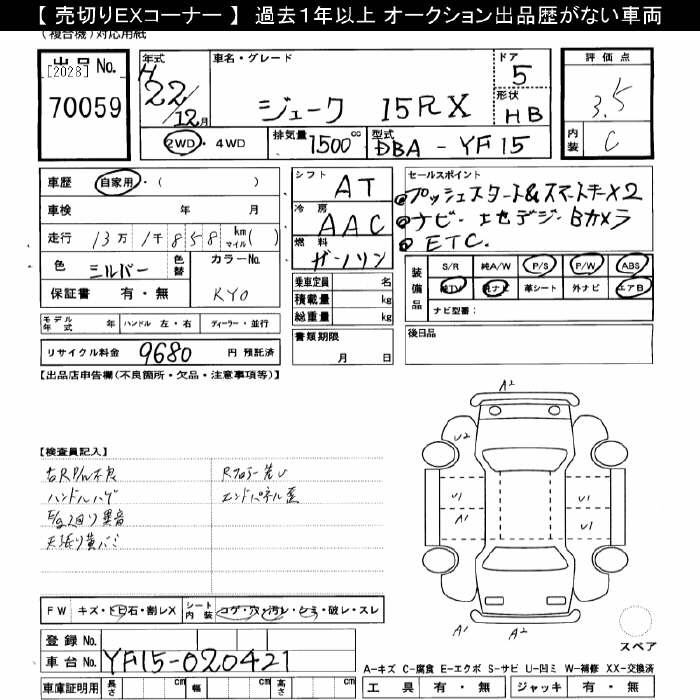 【 売切りEXコーナー 】 過去1年以上 オークション出品歴がない車両
(複合機)対応用紙
出品 No.
[2028]
70059
年式
H
22/12月
車名・グレード
ジューク 15RX
ドア
5
形状
HB
評価点
3.5
内装
C
2WD ・ 4WD
排気量
1500 cc
型式
DBA - YF15
車歴
自家用・( )
車検 年 月
走行 13万 1千 858 km マイル( )
色
シルバー
色替
カラーNo.
KY0
保証書 有・無
シフト
AT
冷房
AAC
燃料
ガソリン
乗車定員 名
積載量 kg
総重量 kg
セールスポイント
●プッシュスタート&スマートキーX2
●ナビー 地デジ・Bカメラ
● ETC.
装備品
S/R 純A/W P/S P/W ABS
純TV 純ナビ 革シート 外ナビ エアB
ナビ型番:
モデル年式 年 ハンドル 左・右 ディーラー・並行
リサイクル料金 9680 円 預託済
書類期限
月 日
後日品
【出品店申告欄(不良箇所・欠品・注意事項等)】
【検査員記入】
右RP/W不良
ハンドルハゲ
E/g廻り異音
天張り黄バミ
Rフロアー先U
エンドパネル歪
A2
U2
U1
A1
U1
U1
A1
A2
スペア
FW キズ・トビ石・割レX
シート内装 コゲ・穴・汚レ・シミ・破レ・スレ
登録 No.
車台 No. YF15-020421
車庫証明用 長さ cm 幅 cm 高さ cm
A-キズ C-腐食 E-エクボ S-サビ U-凹ミ W-補修 XX-交換済
工具 有・無 ジャッキ 有・無